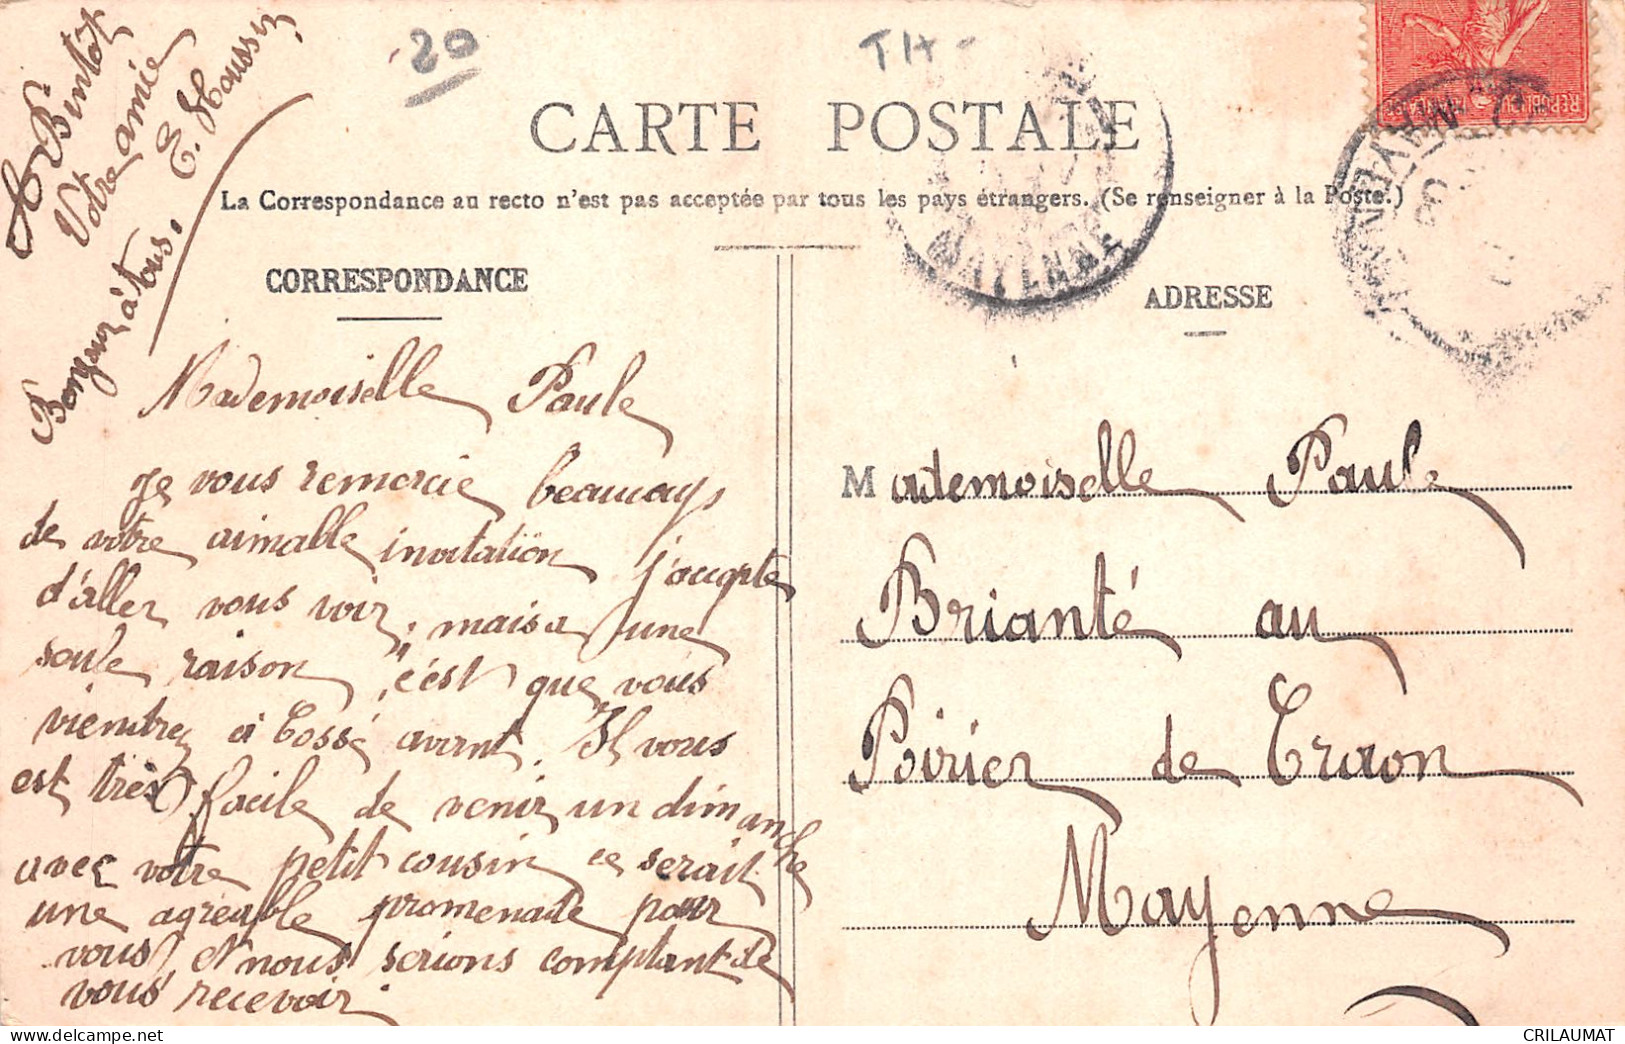 -20
TH-
CARTE POSTALE
La Correspondance au recto n'est pas acceptée par tous les pays étrangers. (Se renseigner à la Poste.)
CORRESPONDANCE
ADRESSE
MAYENNE
MAYENNE
06
RÉPUBLIQUE FRANÇAISE
A Bintôt
Votre amie
E. Houssin
Bonjour à tous.
Mademoiselle Paule
Je vous remercie beaucoup
de votre aimable invitation j'accepte
d'aller vous voir, mais a une
seule raison, c'est que vous
viendrez à Cossé avant. Il vous
est très facile de venir un dimanche
avec votre petit cousin ce serait
une agréable promenade pour
vous et nous serions comptant de
vous recevoir.
Mademoiselle Paule
Brianté au
Poirier de Craon
Mayenne
CRILAUMAT